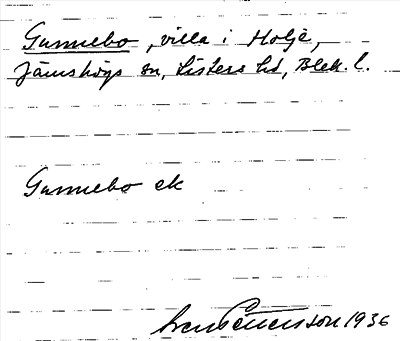 Gunnebo, villa i Holje,
Jämshögs sn, Listers hd, Blek. l.
Gunnebo ek
1936